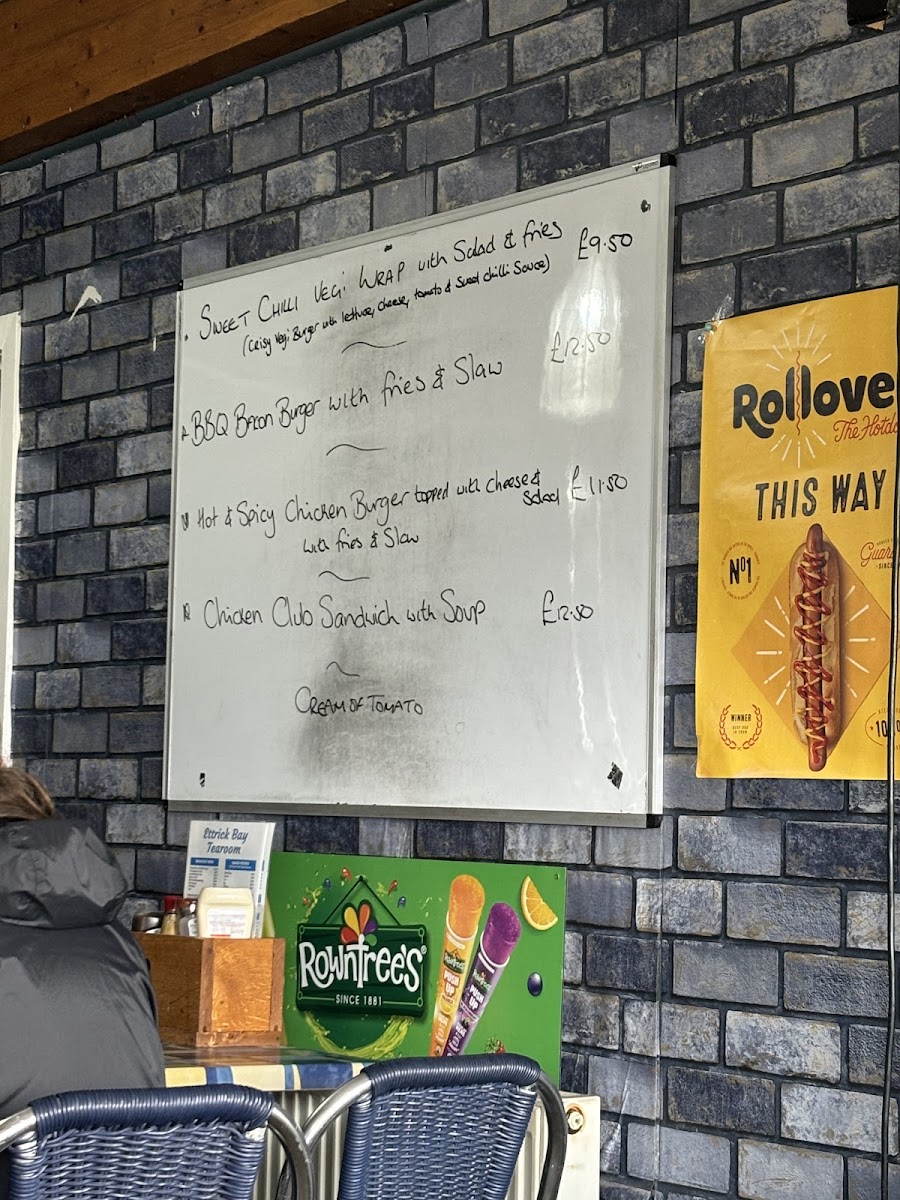 SWEET CHILLI VEGi WRAP with Salad & fries £9.50
(Crisy Vegi Burger with lettuce, cheese, tomato & Sweet chilli Sauce)
BBQ Bacon Burger with fries & Slaw £12.50
Hot & Spicy Chicken Burger topped with cheese & Salad £11.50
with fries & Slaw
Chicken Club Sandwich with Soup £12.50
CREAM OF TOMATO
Rollove
The Hotdo
THIS WAY
Nº1
Guara
SINCE
WINNER
10
Ettrick Bay
Tearoom
ROWNTREE'S®
SINCE 1881
PUSH UP
PUSH UP